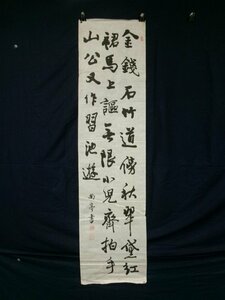 金錢石竹道傍秋翠黛紅
裙馬上謳無限小兒齊拍手
山公又作習池遊